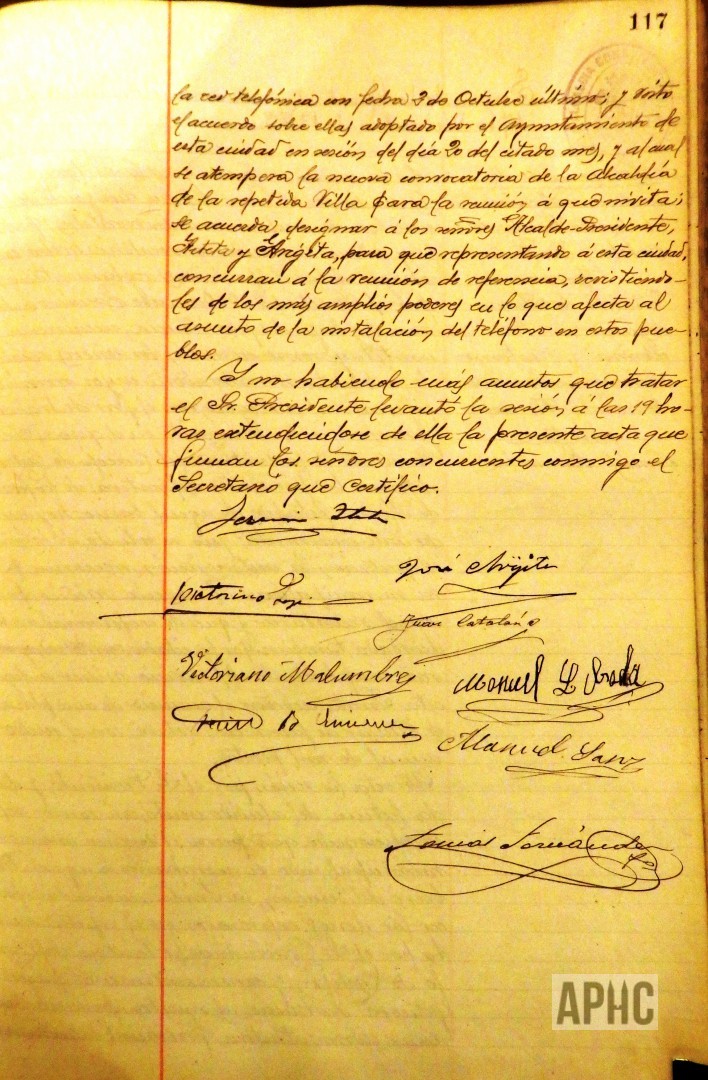 117
la red telefónica con fecha 3 de Octubre último; y visto
el acuerdo sobre ellas adoptado por el Ayuntamiento de
esta ciudad en sesión del día 20 del citado mes, y al cual
se atempera la nueva convocatoria de la Alcaldía
de la repetida Villa para la reunión á que invita;
se acuerda designar á los señores Alcalde-Presidente,
y Argita, para que representando á esta ciudad,
concurran á la reunión de referencia, revistiendo-
les de los más amplios poderes en lo que afecta al
asunto de la instalación del teléfono en estos pue-
blos.
Y no habiendo más asuntos que tratar
el Sr. Presidente levantó la sesión á las 19 ho-
ras extendiéndose de ella la presente acta que
firman los señores concurrentes conmigo el
Secretario que certifico.
José Argita
Victorino
Juan Catalán
Victoriano Malumbres
Manuel L
B Jimenez
Manuel Sanz
APHC